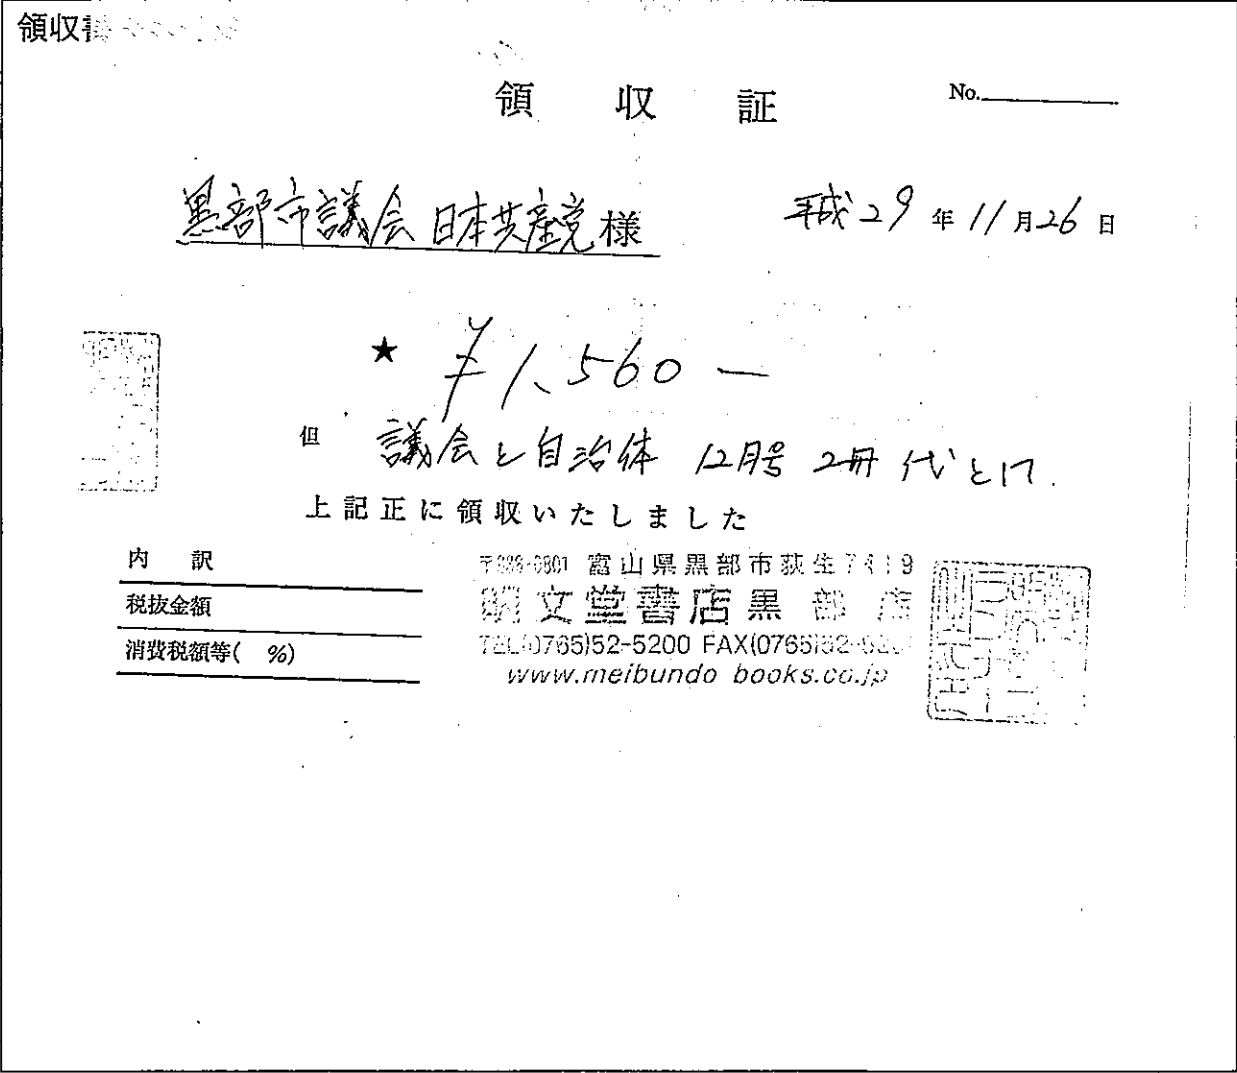 領収書
領収証
No.
黒部市議会 日本共産党 様
平成29年11月26日
★ ¥1,560-
但 議会と自治体 12月号 2冊 代として
上記正に領収いたしました
内訳
税抜金額
消費税額等( %)
富山県黒部市荻生
明文堂書店黒部店
TEL(0765)52-5200 FAX(0765)52-
www.meibundo books.co.jp